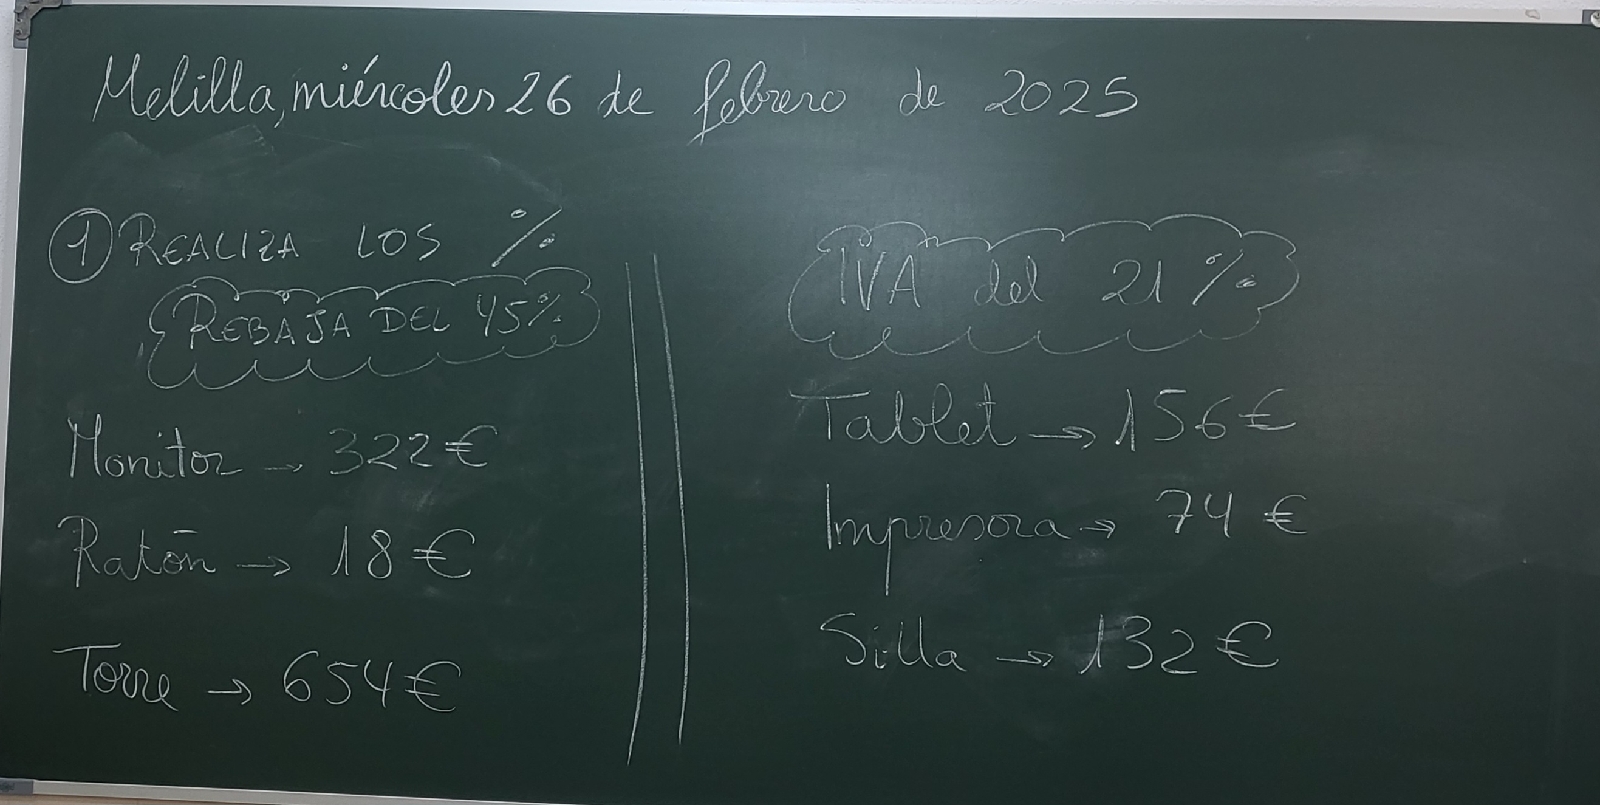 Melilla, miércoles 26 de febrero de 2025
1 REALIZA LOS %
REBAJA DEL 45%
Monitor → 322€
Ratón → 18€
Torre → 654€
IVA del 21%
Tablet → 156€
Impresora → 74€
Silla → 132€